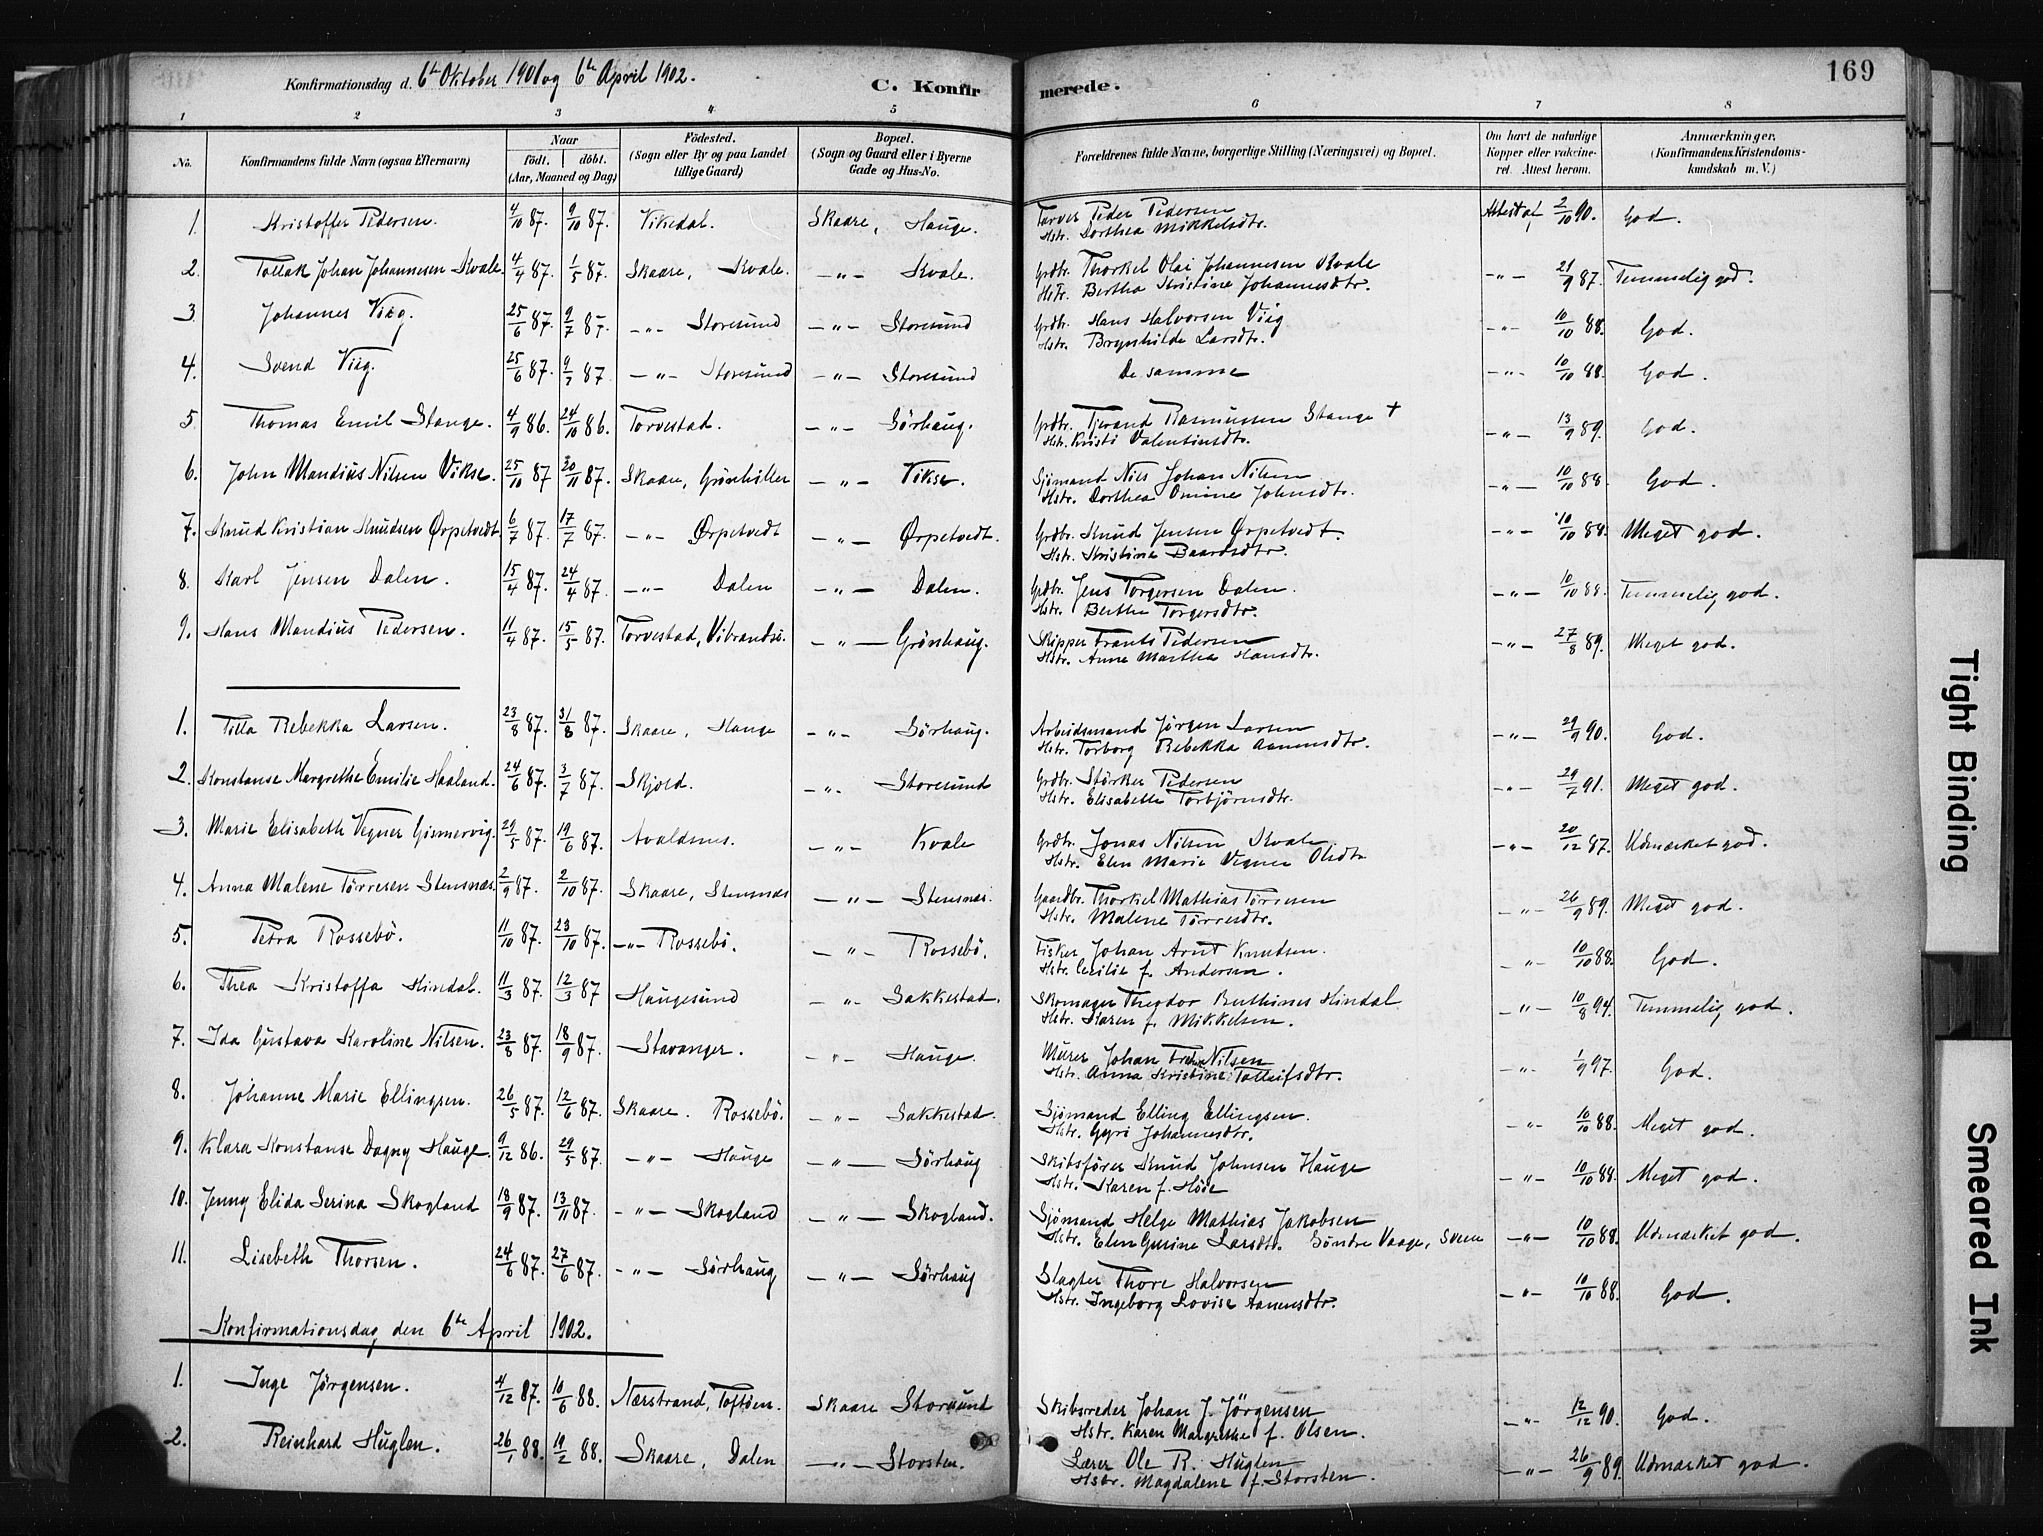 Konfirmationsdag d. 6te Oktober 1901 og 6te April 1902.
C. Konfirmerede.
169
1 2 3 4 5 6 7 8
No. Konfirmandens fulde Navn (ogsaa Efternavn) Naar födt. döbt. (Aar, Maaned og Dag) Födested. (Sogn eller By og paa Landet tillige Gaard) Bopæl. (Sogn og Gaard eller i Byerne Gade og Hus-No. Forældrenes fulde Navne, borgerlige Stilling (Næringsvei) og Bopæl. Om havt de naturlige Kopper eller vakcineret. Attest herom. Anmærkninger. (Konfirmandens Kristendomskundskab m. V.)
1. Kristoffer Pedersen. 4/10 87. 9/10 87. Vikedal. Skaare, Hauge. Peder Pedersen Attest af 2/10 90. God.
Hstr. Dorthea Mikkelsdtr.
2. Tollak Johan Johannesen Kvale 4/4 87. 1/5 87. Skaare, Kvale. -"- Kvale. Grdbr. Thorkel Olai Johannesen Kvale -"- 21/9 87. Temmelig god.
Hstr. Bertha Kristine Johannesdtr.
3. Johannes Viig. 25/6 87. 9/7 87. -"- Storesund -"- Storesund Grdbr. Hans Halvorsen Viig -"- 10/10 88. God.
Hstr. Brynhilde Larsdtr.
4. Svend Viig. 25/6 87. 9/7 87 -"- Storesund -"- Storesund De samme -"- 10/10 88. God.
5. Thomas Emil Stange. 4/9 86. 24/10 86. Torvestad. -"- Sörhaug. Grdbr. Tjerand Rasmussen Stange + -"- 13/9 89. God.
Hstr. Kristi Valentinsdtr.
6. John Mandius Nilsen Vikse. 25/10 87 20/11 87. Skaare, Grönhiller -"- Vikse. Sjömand Nils Johan Nilsen -"- 10/10 88. God.
Hstr. Dorthea Omine Johnsdtr.
7. Knud Kristian Knudsen Ørpetvedt 6/7 87. 17/7 87. -"- Ørpetvedt -"- Ørpetvedt. Grdbr. Knud Jensen Ørpetvedt. -"- 10/10 88. Meget god.
Hstr. Kristine Baardsdtr.
8. Karl Jensen Dalen. 15/4 87. 24/4 87. -"- Dalen -"- Dalen. Grdbr. Jens Torgersen Dalen. -"- 10/10 88. Temmelig god.
Hstr. Berthe Torgersdtr.
9. Hans Mandius Pedersen. 11/4 87. 15/5 87. Torvestad, Vibrandsö. -"- Grönhaug. Skipper Frants Pedersen -"- 27/8 89. Meget god.
Hstr. Anne Martha Hansdtr.
1. Tilla Rebekka Larsen. 23/8 87. 31/8 87. Skaare, Hauge -"- Sörhaug. Arbeidsmand Jörgen Larsen -"- 29/9 90. God.
Hstr. Torborg Rebekka Aanensdtr.
2. Konstanse Margrethe Emilie Haaland. 24/6 87. 3/7 87. Skjold. -"- Storesund Grdbr. Störker Pedersen -"- 29/7 91. Meget god.
Hstr. Elisabeth Torbjörnsdtr.
3. Marie Elisabeth Vegner Gismervig. 29/5 87. 19/6 87. Avaldsnes. -"- Kvale Grdbr. Jonas Nilsen Kvale -"- 20/12 87. Udmærket god.
Hstr. Elen Marie Vegner Olsdtr.
4. Anna Malene Törresen Stensnæs. 2/9 87. 2/10 87. Skaare, Stensnæs -"- Stensnæs. Gaardbr. Thorkel Mathias Törresen -"- 26/9 89. Meget god.
Hstr. Malene Törresdtr.
5. Petra Rossebö. 11/10 87. 23/10 87. -"- Rossebö. -"- Rossebö. Fisker Johan Arnt Knudsen. -"- 10/10 88. God.
Hstr. Cecilie f. Andersen.
6. Thea Kristoffa Hindal. 11/3 87. 12/3 87 Haugesund -"- Sakkestad. Skomager Theodor Buthinus Hindal -"- 10/8 94. Temmelig god.
Hstr. Karen f. Mikkelsen.
7. Ida Gustava Karoline Nilsen. 23/8 87. 18/9 87. Stavanger. -"- Hauge. Murer Johan Nilsen -"- 1/9 97. God.
Hstr. Anna Kristine Tolleifsdtr.
8. Johanne Marie Ellingsen. 26/5 87. 12/6 87. Skaare. Rossebö. -"- Sakkestad. Sjömand Elling Ellingsen. -"- 10/10 88. Meget god.
Hstr. Gyri Johannesdtr.
9. Klara Konstanse Dagny Hauge. 9/12 86. 29/5 87. -"- Hauge -"- Sörhaug Skibsförer Knud Johnsen Hauge -"- 10/10 88. Meget god.
Hstr. Karen f. Höie
10. Jenny Elida Serina Skogland 18/9 87. 13/11 87. -"- Skogland -"- Skogland. Sjömand Helge Mathias Jakobsen -"- 10/10 88. Udmærket god.
Hstr. Elen Gurine Larsdtr. Söndre Vaage, Sveen
11. Lisebeth Thorsen. 24/6 87. 27/6 87. -"- Sörhaug -"- Sörhaug Slagter Thore Halvorsen -"- 10/10 88. God.
Hstr. Ingeborg Lovise Aanensdtr.
Konfirmationsdag den 6te April 1902.
1. Inge Jörgensen. 4/12 87. 10/6 88. Nærstrand, Toftöen. Skaare Storesund Skibsreder Johan J. Jörgensen -"- 12/12 90. God.
Hstr. Karen Margrethe f. Olsen.
2. Reinhard Huglen. 26/1 88. 19/2 88. Skaare, Dalen -"- Storsten. Lærer Ole R. Huglen -"- 26/9 89. Udmærket god.
Hstr. Magdalene f. Storsten.
Tight Binding
Smeared Ink